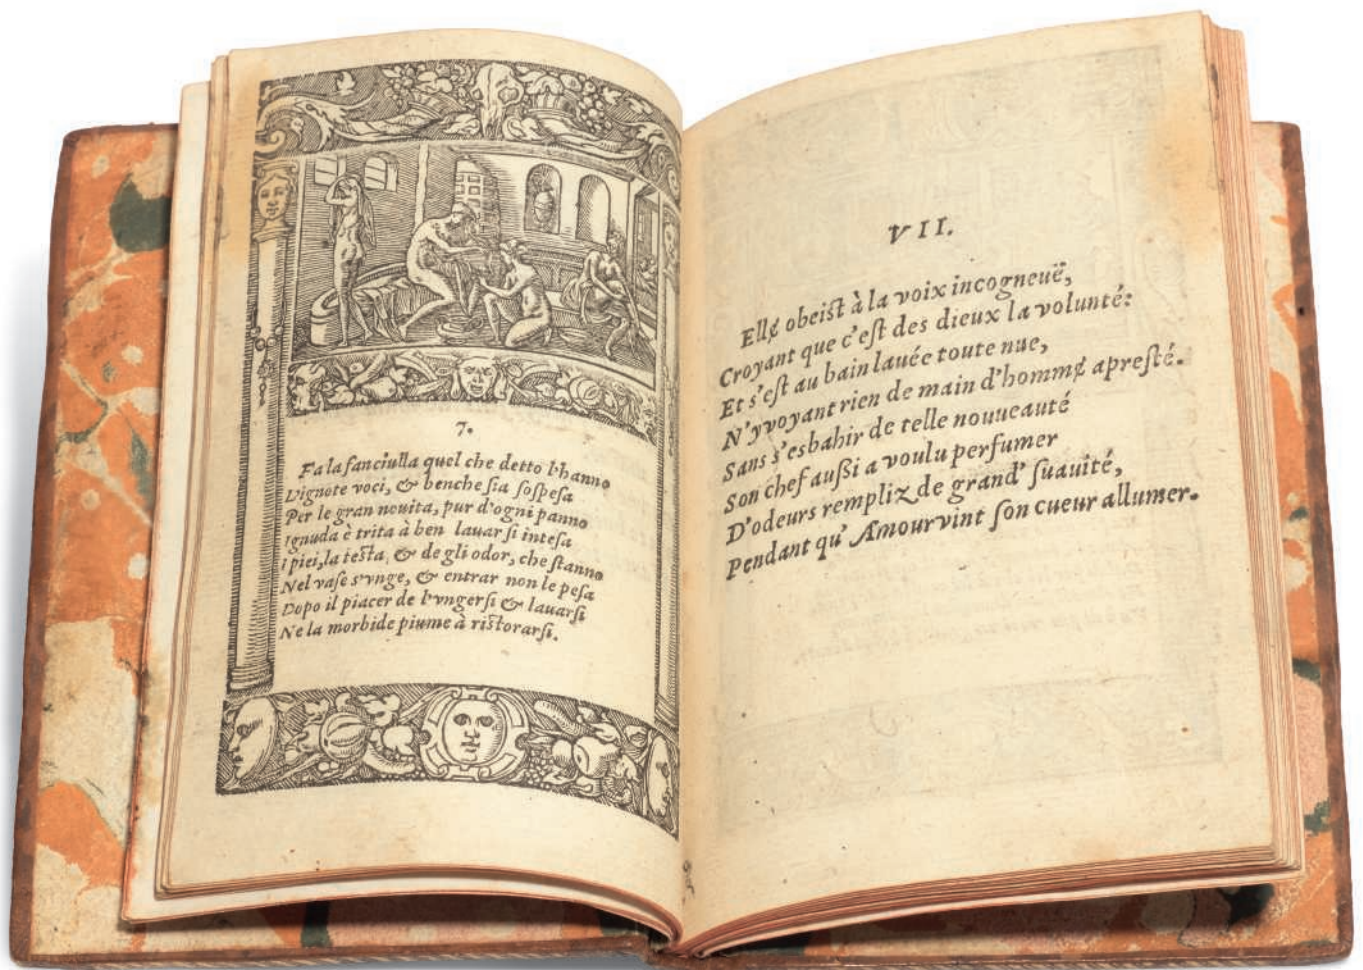 7.
Fa la fanciulla quel che detto l'hanno
L'ignote voci, & benche sia sospesa
Per le gran nouita, pur d'ogni panno
Ignuda è trita à ben lauarsi intesa
I piei, la testa, & de gli odor, che stanno
Nel vase s'vnge, & entrar non le pesa
Dopo il piacer de l'vngersi & lauarsi
Ne la morbide piume à ristorarsi.
VII.
Elle obeist à la voix incogneuë,
Croyant que c'est des dieux la volunté:
Et s'est au bain lauée toute nue,
N'y voyant rien de main d'homme apresté.
Sans s'esbahir de telle nouueauté
Son chef aussi a voulu perfumer
D'odeurs rempliz de grand' suauité,
Pendant qu'Amour vint son cueur allumer.